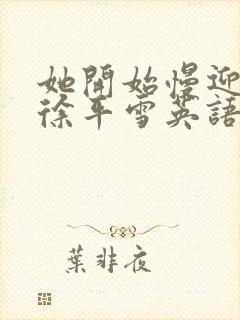 她開始慢迎
徐平雪英語
葉非夜